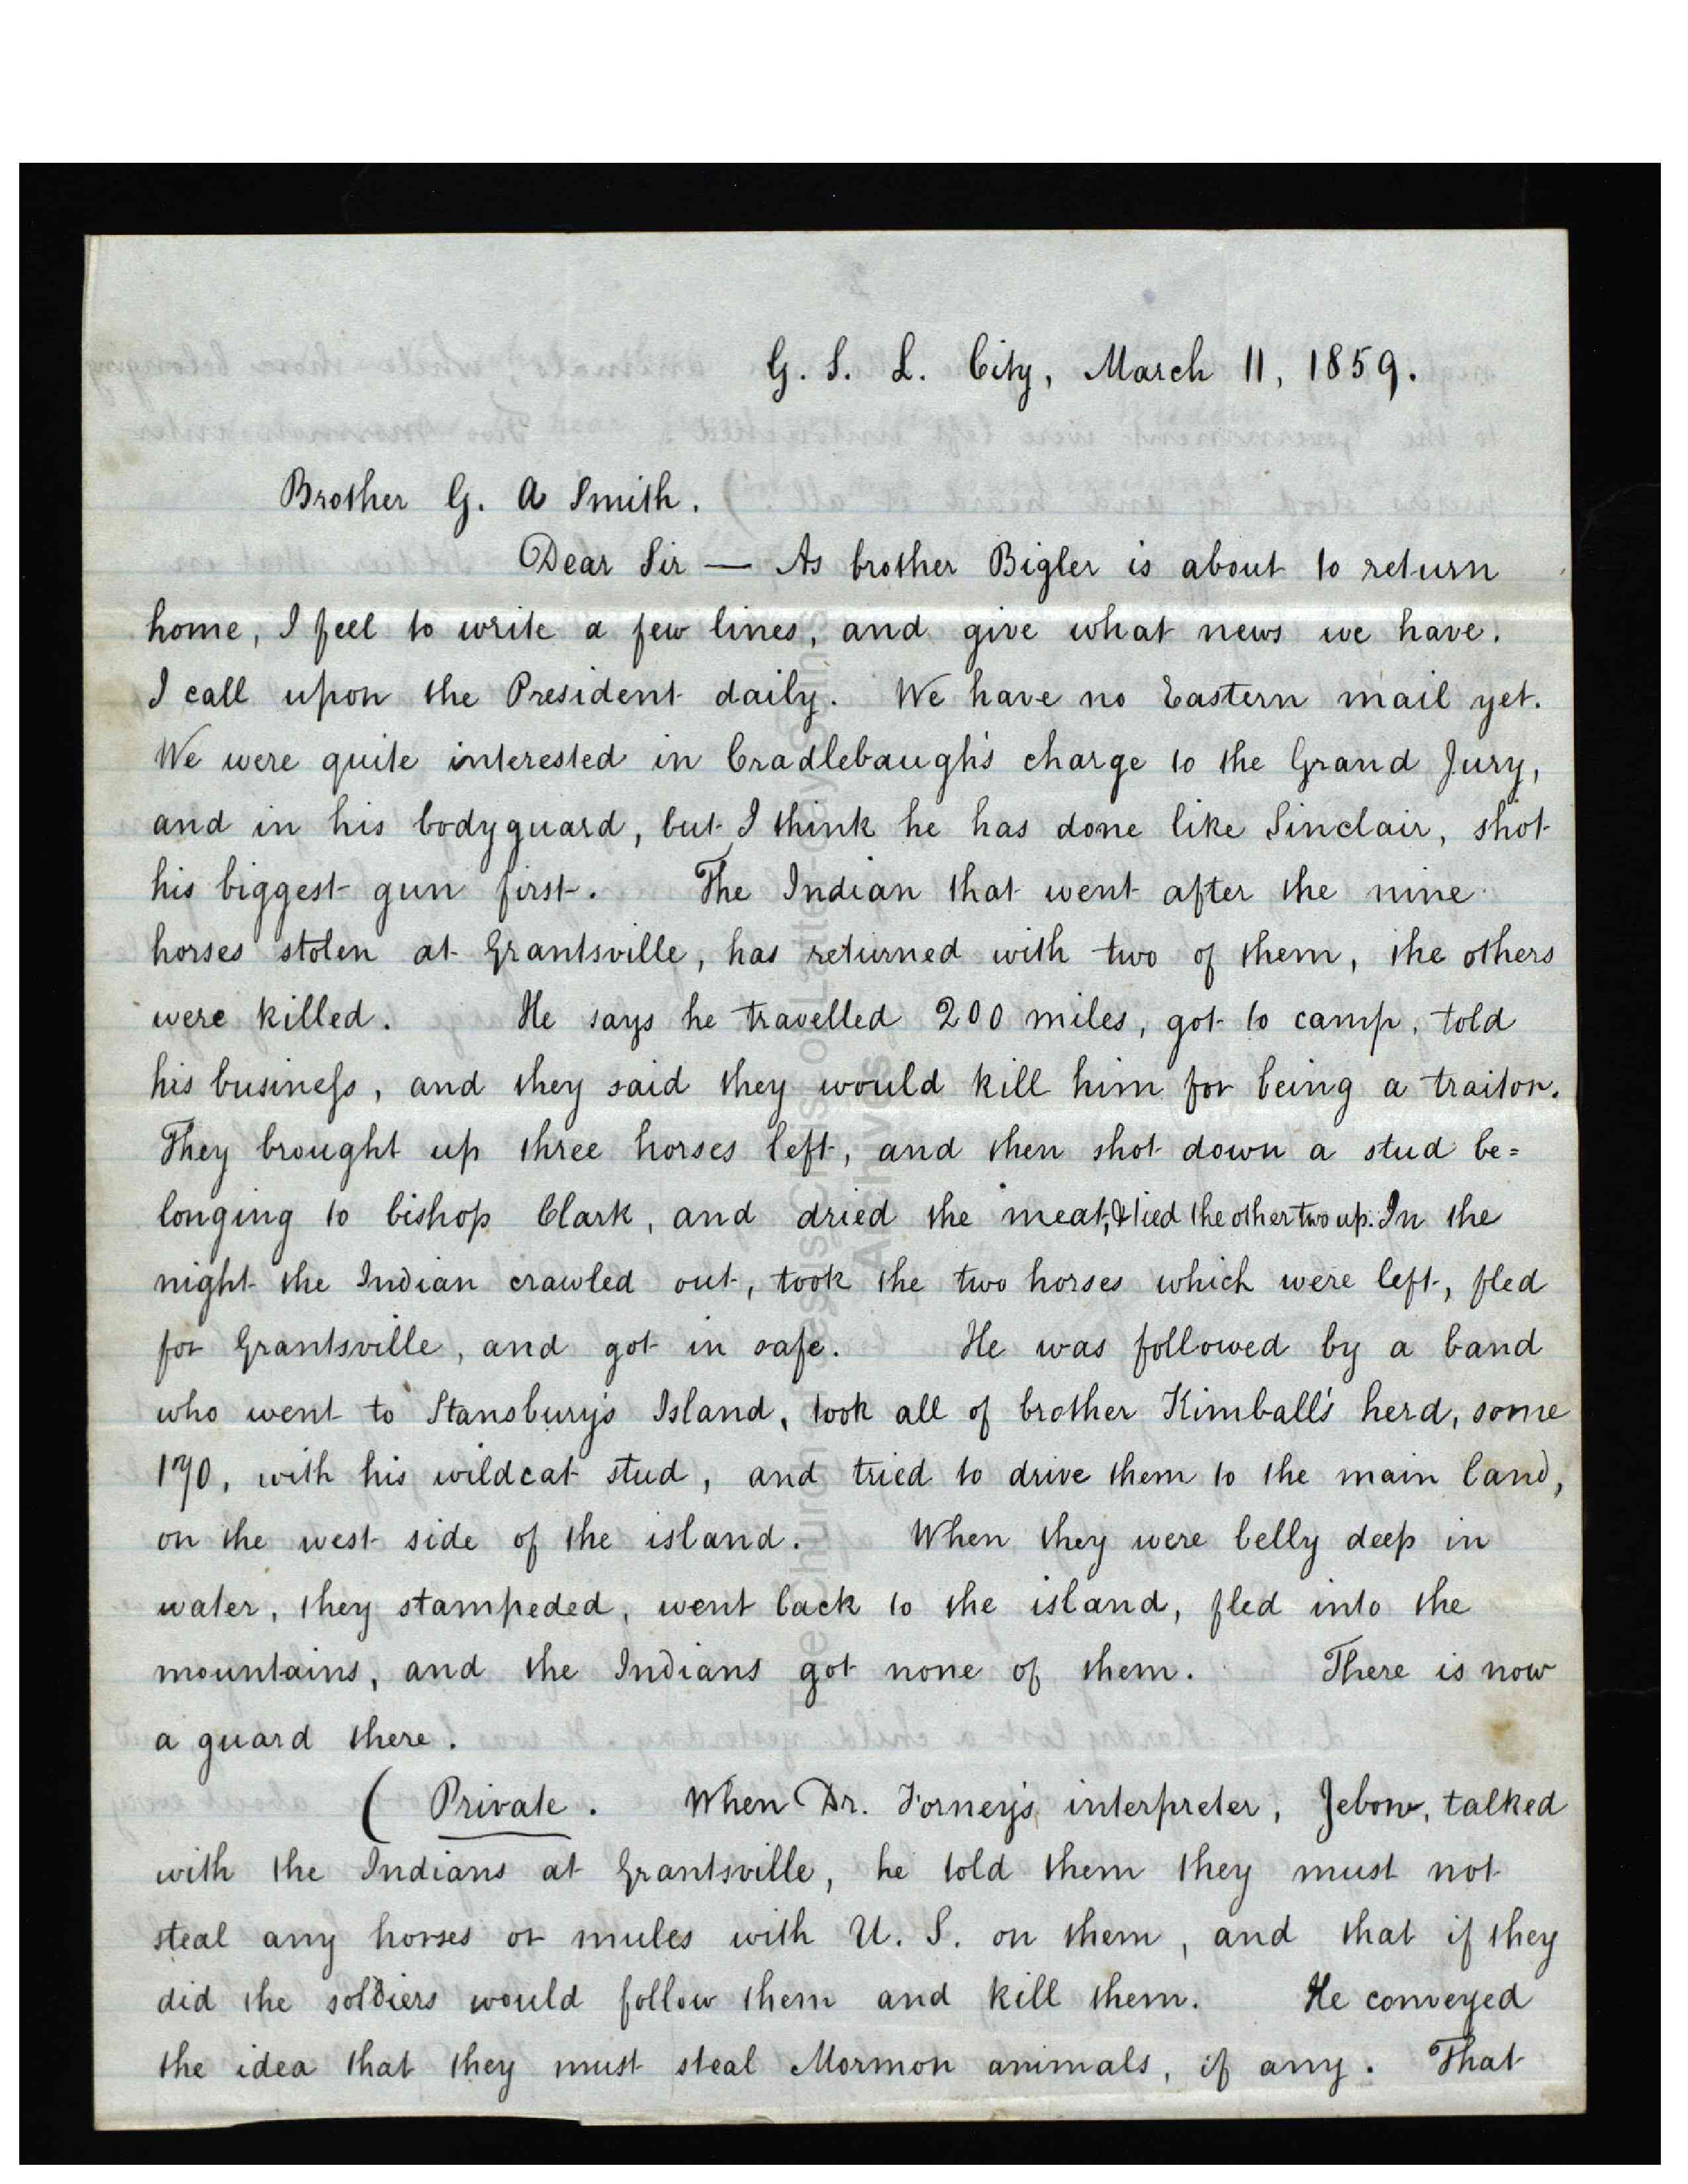 G. S. L. City, March 11, 1859.
Brother G. A Smith.
Dear Sir — As brother Bigler is about to return
home, I feel to write a few lines, and give what news we have.
I call upon the President daily. We have no Eastern mail yet.
We were quite interested in Cradlebaugh's charge to the Grand Jury,
and in his bodyguard, but I think he has done like Sinclair, shot
his biggest gun first. The Indian that went after the nine
horses stolen at Grantsville, has returned with two of them, the others
were killed. He says he travelled 200 miles, got to camp, told
his business, and they said they would kill him for being a traitor.
They brought up three horses left, and then shot down a stud be=
longing to bishop Clark, and dried the meat, & tied the other two up. In the
night the Indian crawled out, took the two horses which were left, fled
for Grantsville, and got in safe. He was followed by a band
who went to Stansbury's Island, took all of brother Kimball's herd, some
170, with his wildcat stud, and tried to drive them to the main land,
on the west side of the island. When they were belly deep in
water, they stampeded, went back to the island, fled into the
mountains, and the Indians got none of them. There is now
a guard there.
( Private. When Dr. Forney's interpreter, Jebow, talked
with the Indians at Grantsville, he told them they must not
steal any horses or mules with U. S. on them, and that if they
did the soldiers would follow them and kill them. He conveyed
the idea that they must steal Mormon animals, if any. That